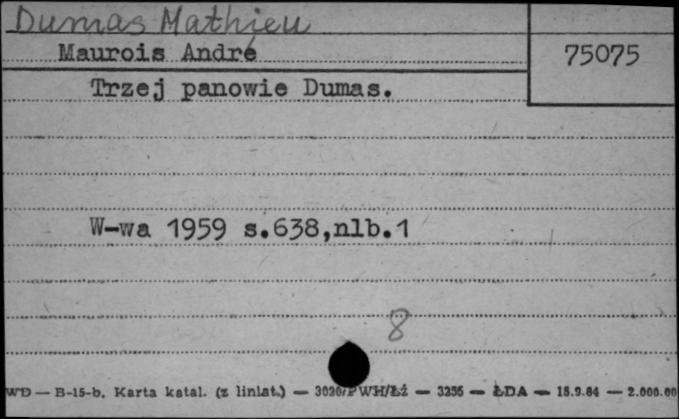 Dumas Mathieu
Maurois André
75075
Trzej panowie Dumas.
W-wa 1959 s.638,nlb.1
8
WD — B-15-b. Karta katal. (z liniat.) — 3020/PWH/Łź — 3255 — ŁDA — 15.9.64 — 2.000.00